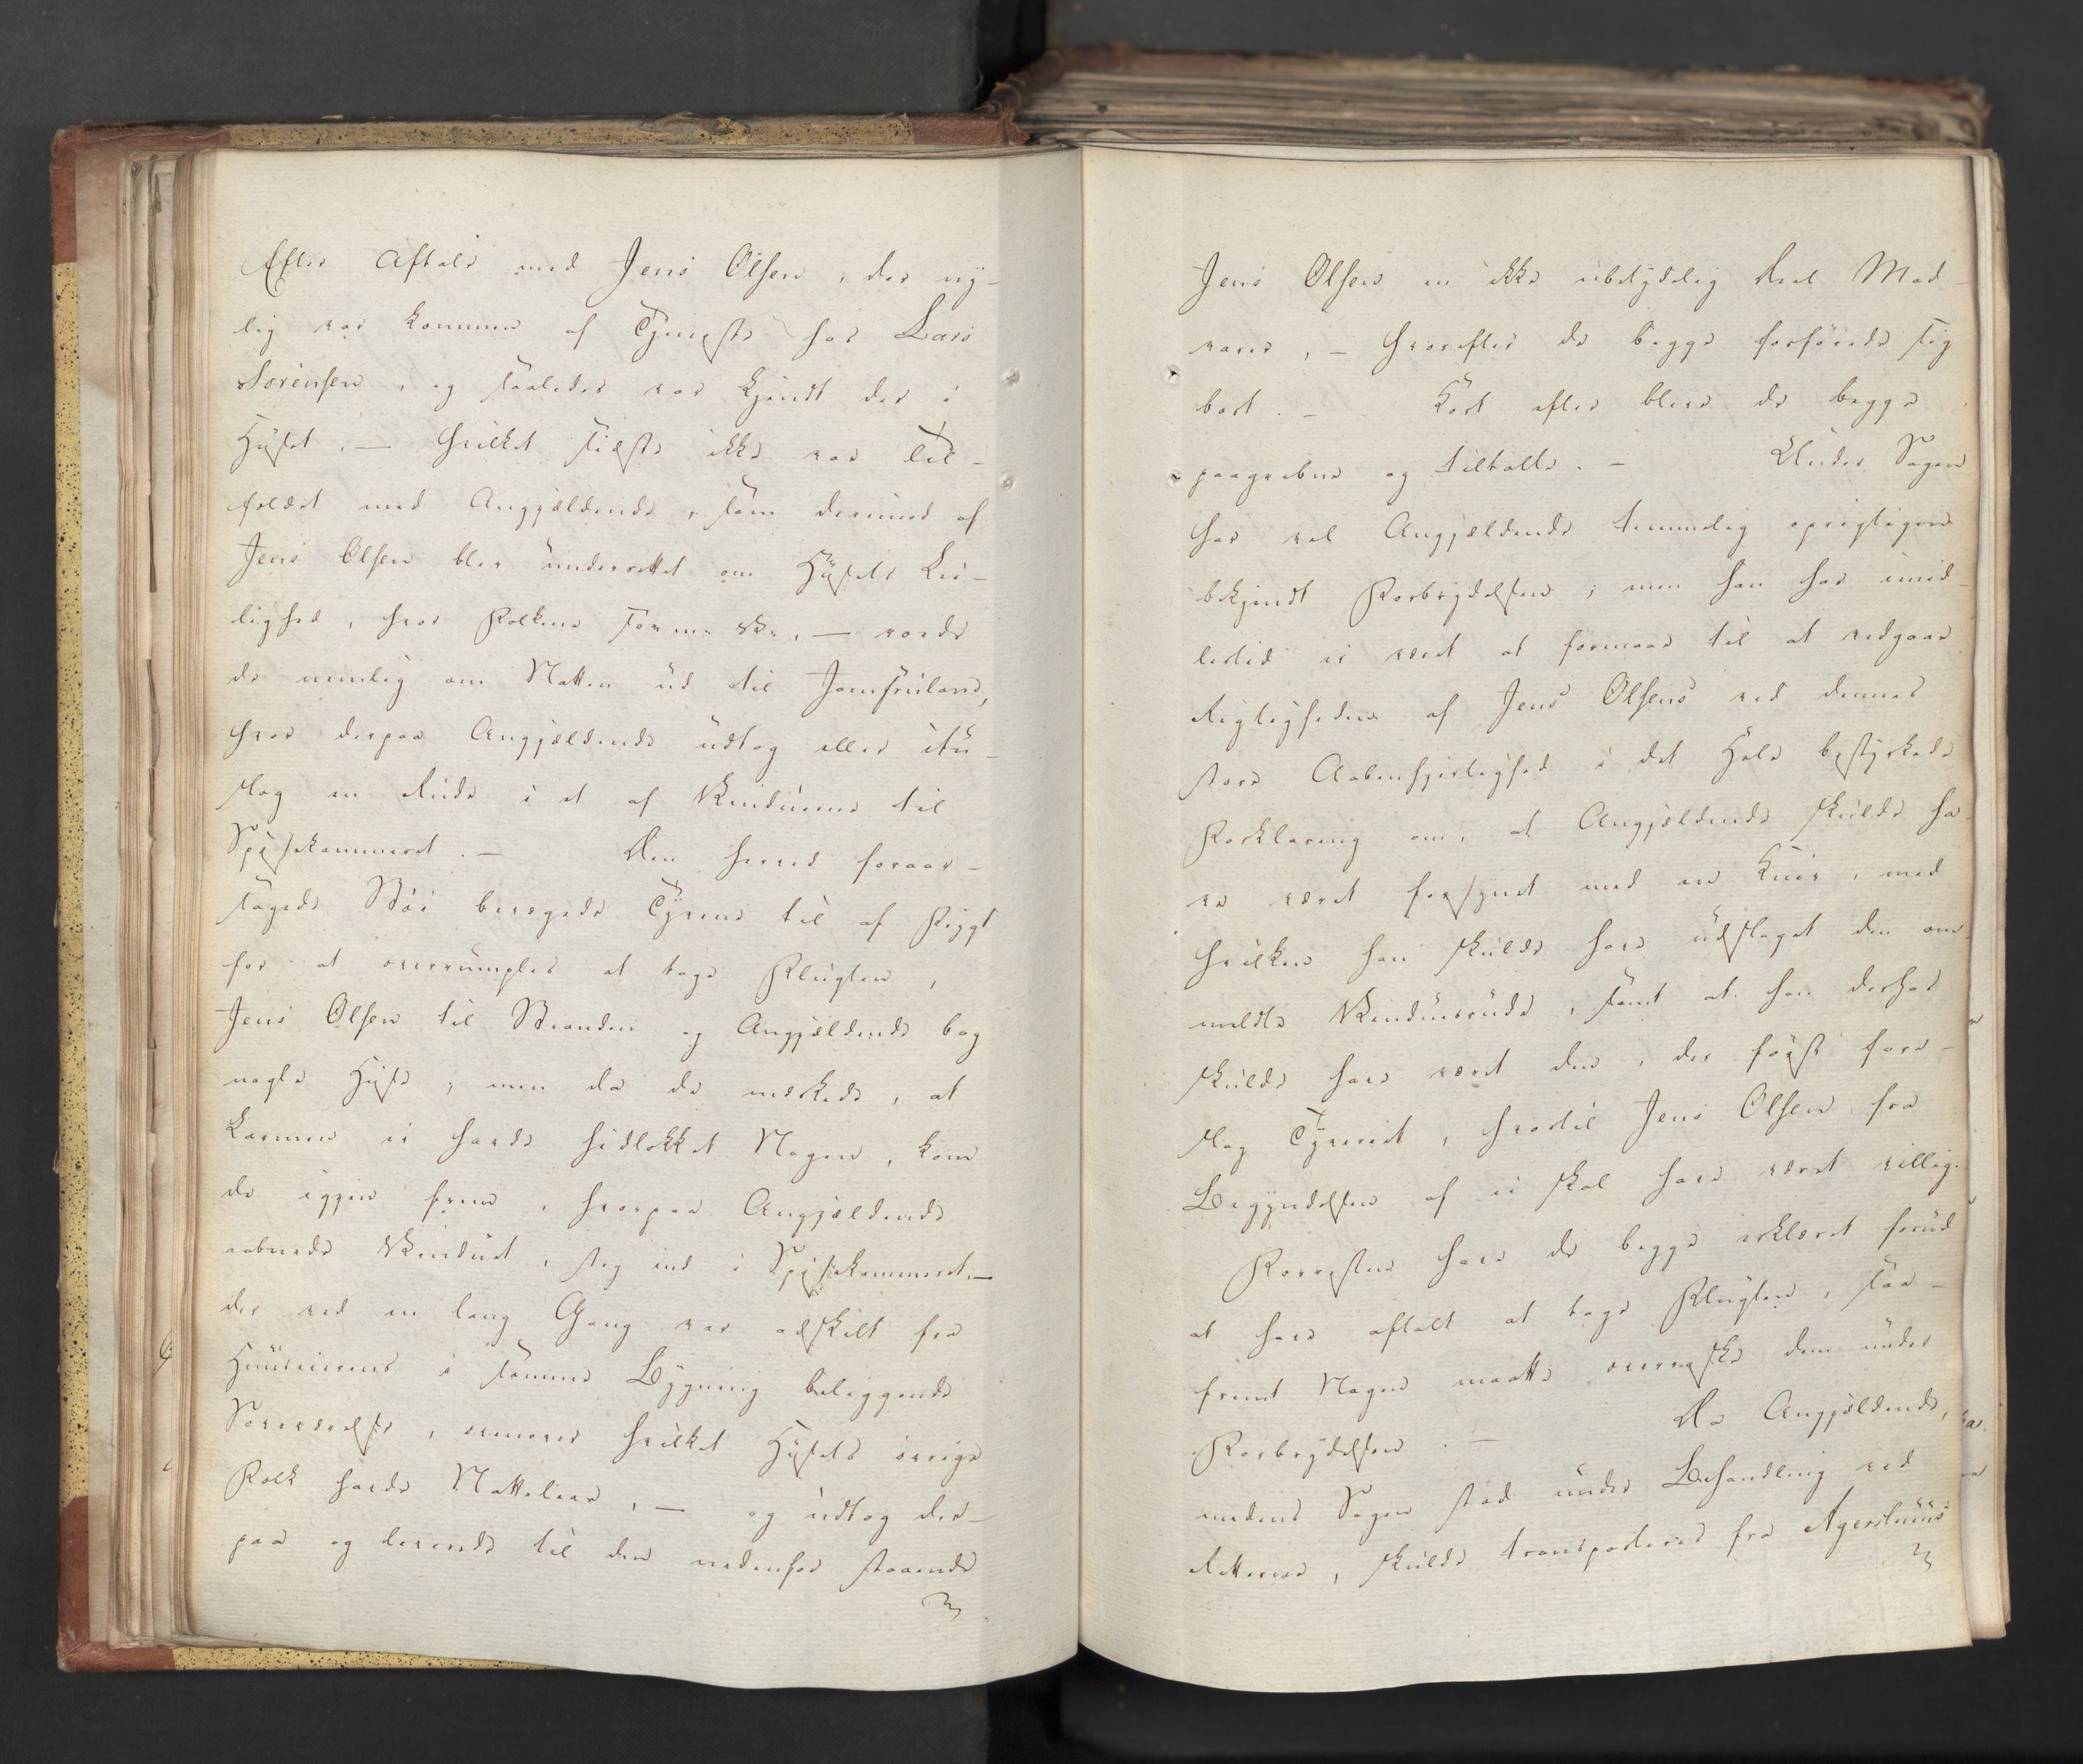 Efter Aftale med Jens Olsen, der ny-
lig var kommen af Tjeneste hos Lars
Sørensen, og saaledes var kjendt der i
Huset, — hvilket sidste ikke var Til-
fældet med Angjældende, som derimod af
Jens Olsen blev underrettet om Husets Lei-
lighed, hvor Folkene sov m: v:, — roede
de nemlig om Natten ud til Jomfruland,
hvor derpaa Angjældende udtog eller itu-
slog en Rude i et af Vinduerne til
Spisekammeret. — Den herved foraar-
sagede Støi bevægede Tyvene til af Frygt
for at overrumples at tage Flugten,
Jens Olsen til Stranden og Angjældende bag
nogle Huse, men da de mærkede, at
Larmen ei havde hidlokket Nogen, kom
de igjen frem, hvorpaa Angjældende
aabnede Vinduet, steg ind i Spisekammeret, —
der ved en lang Gang var adskilt fra
Huuseierens i samme Bygning beliggende
Soveværelse, ovenover hvilket Husets øvrige
Folk havde Natteleie, — og udtog der-
paa og leverede til den nedenfor staaende
Jens Olsen en ikke ubetydelig Deel Mad-
varer, — hvorefter de begge forføiede sig
bort. — Kort efter bleve de begge
paagrebne og tiltalte. — Under Sagen
har vel Angjældende temmelig oprigtigen
bekjendt Forbrydelsen; men han har imid-
lertid ei været at formaae til at vedgaae
Rigtigheden af Jens Olsens ved dennes
store Aabenhjertighed i det Hele bestyrkede
Forklaring om, at Angjældende skulde ha-
ve været forsynet med en Kniv, med
hvilken han skulde have udslaget den om-
meldte Vinduesrude, samt at han derhos
skulde have været den, der først fore-
slog Tyveriet, hvortil Jens Olsen fra
Begyndelsen af ei skal have været villig.
Forresten have de begge erklæret forud
at have aftalt at tage Flugten, saa-
fremt Nogen maatte overraske dem under
Forbrydelsen. — Da Angjældende,
medens Sagen stod under Behandling ved
Retterne, skulde transporteres fra Agershuus